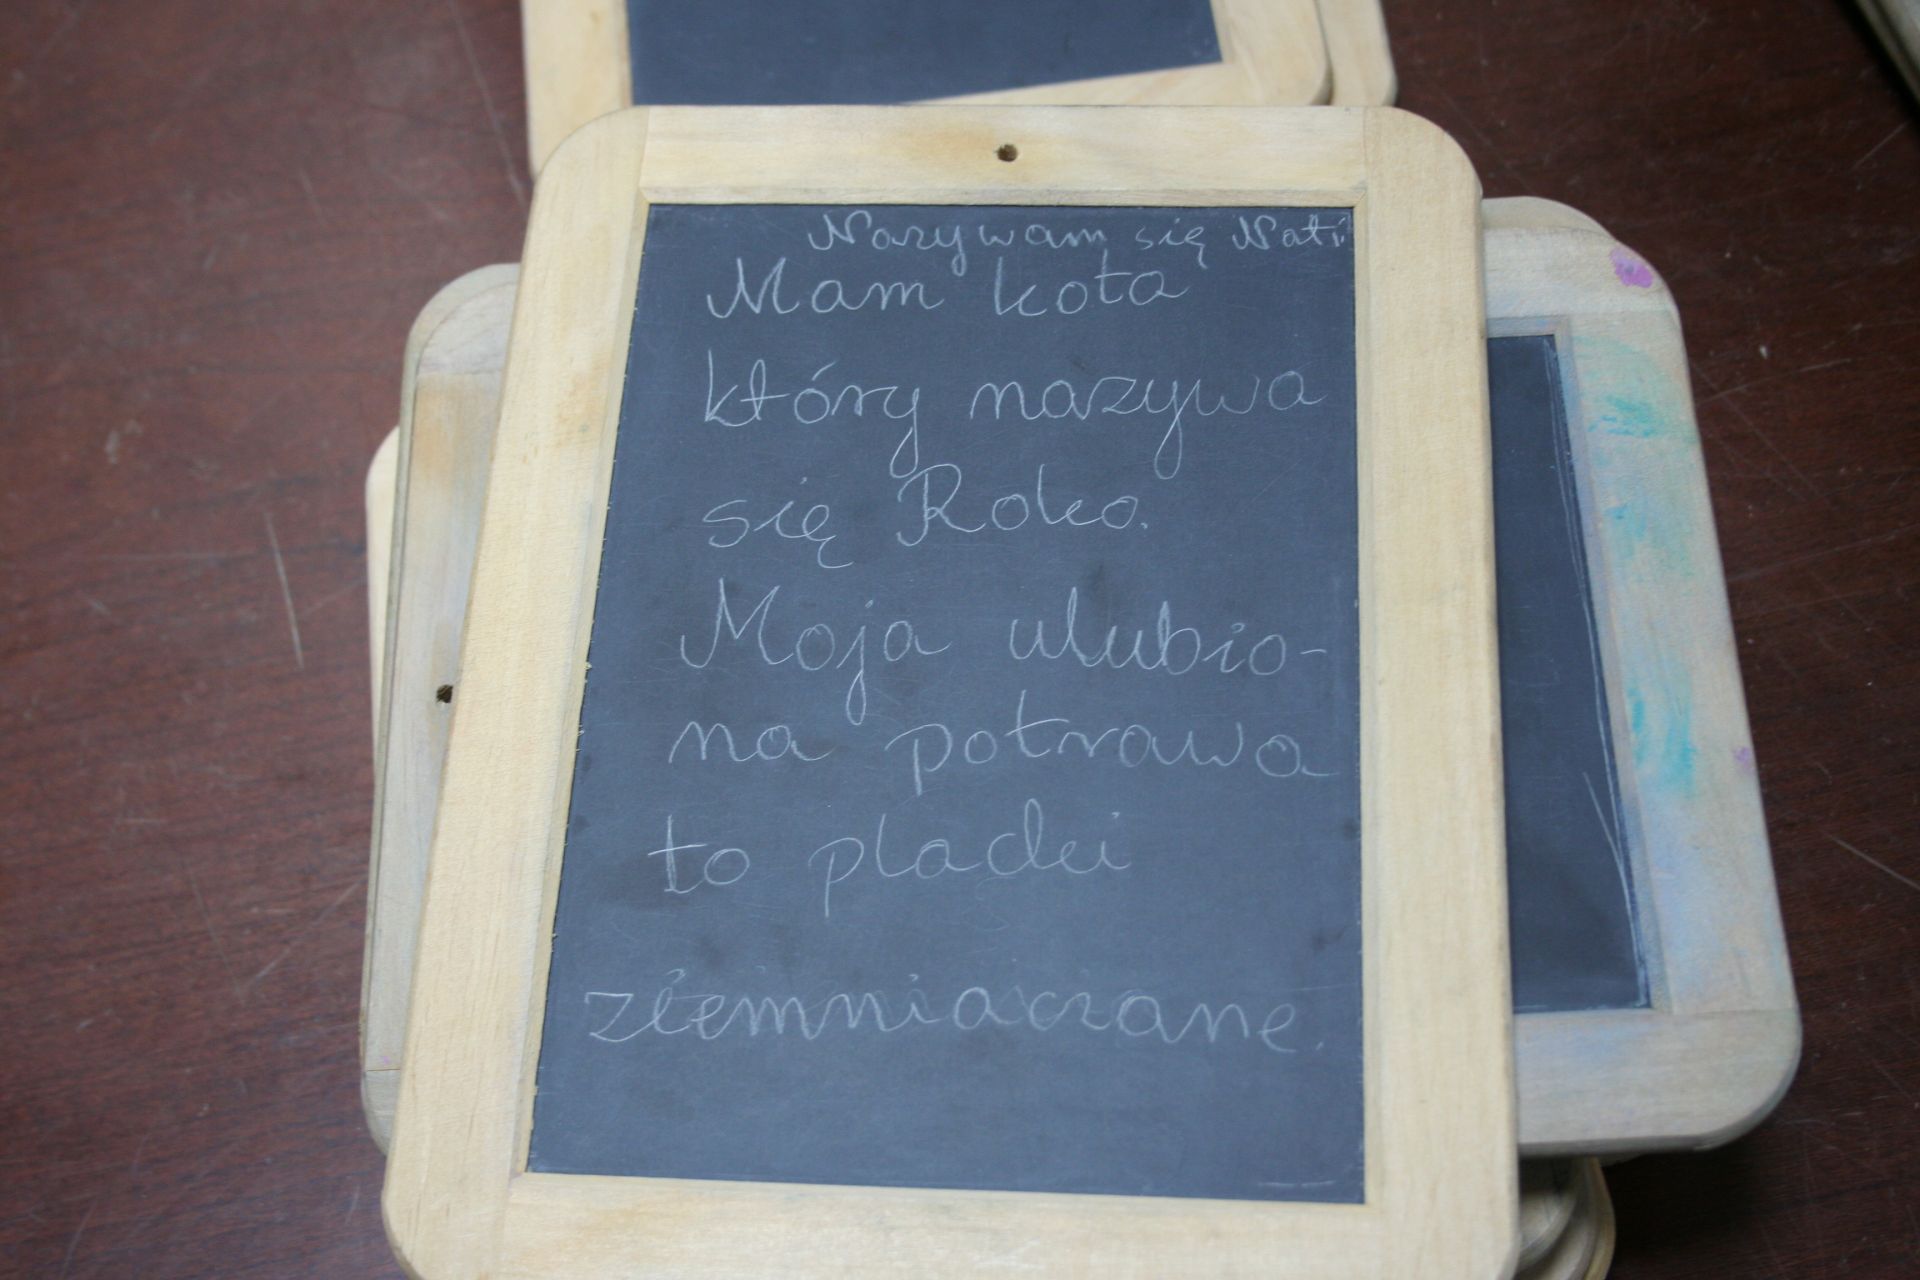 Nazywam się Nati
Mam kota
który nazywa
się Roko.
Moja ulubio-
na potrawa
to placki
ziemniaczane.